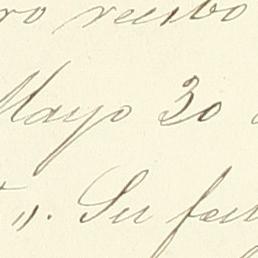 ro recibo
Mayo 30
". Su fav